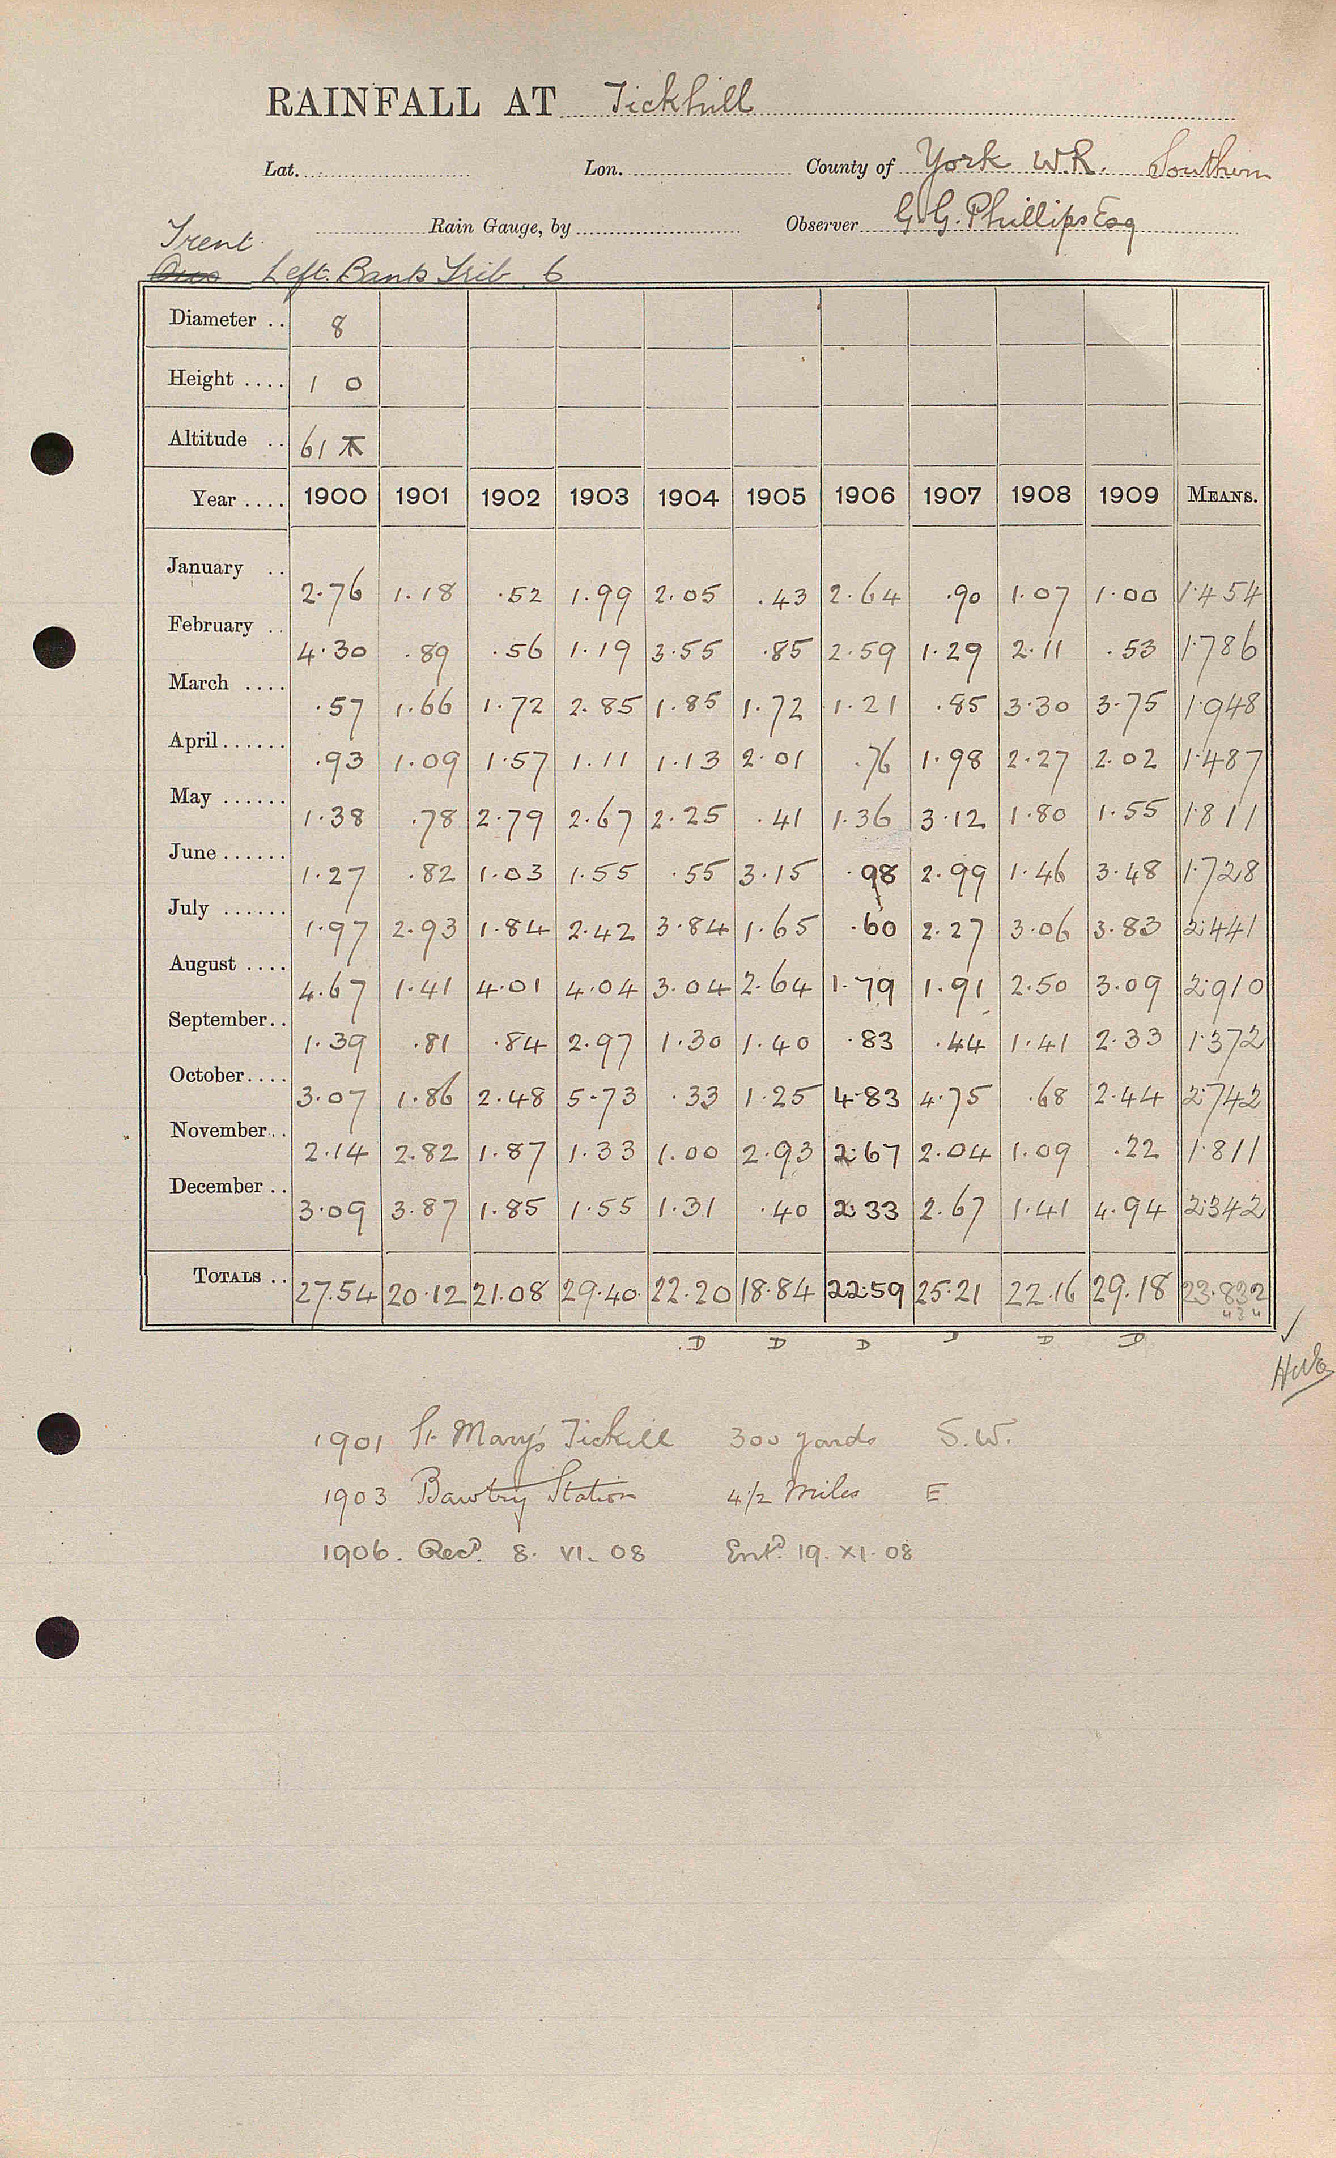 RAINFALL AT Tickhill
Lat. Lon. County of York W.R. Southern
Rain Gauge, by Observer G. G. Phillips Esq
Trent
Left Bank Trib 6
Diameter .. 8
Height .... 1 0
Altitude .. 61
Year .... 1900 1901 1902 1903 1904 1905 1906 1907 1908 1909 MEANS.
January .. 2.76 1.18 .52 1.99 2.05 .43 2.64 .90 1.07 1.00 1.454
February .. 4.30 .89 .56 1.19 3.55 .85 2.59 1.29 2.11 .53 1.786
March .... .57 1.66 1.72 2.85 1.85 1.72 1.21 .85 3.30 3.75 1.948
April ...... .93 1.09 1.57 1.11 1.13 2.01 .76 1.98 2.27 2.02 1.487
May ...... 1.38 .78 2.79 2.67 2.25 .41 1.36 3.12 1.80 1.55 1.811
June ...... 1.27 .82 1.03 1.55 .55 3.15 .98 2.99 1.46 3.48 1.728
July ...... 1.97 2.93 1.84 2.42 3.84 1.65 .60 2.27 3.06 3.83 2.441
August .... 4.67 1.41 4.01 4.04 3.04 2.64 1.79 1.91 2.50 3.09 2.910
September .. 1.39 .81 .84 2.97 1.30 1.40 .83 .44 1.41 2.33 1.372
October .... 3.07 1.86 2.48 5.73 .33 1.25 4.83 4.75 .68 2.44 2.742
November .. 2.14 2.82 1.87 1.33 1.00 2.93 2.67 2.04 1.09 .22 1.811
December .. 3.09 3.87 1.85 1.55 1.31 .40 2.33 2.67 1.41 4.94 2.342
TOTALS .. 27.54 20.12 21.08 29.40 22.20 18.84 22.59 25.21 22.16 29.18 23.832
D D D D D
1901 St. Mary's Tickhill 300 yards S.W.
1903 Bawtry Station 4 1/2 Miles E
1906. Recd. 8. VI. 08 Entd. 19. XI. 08